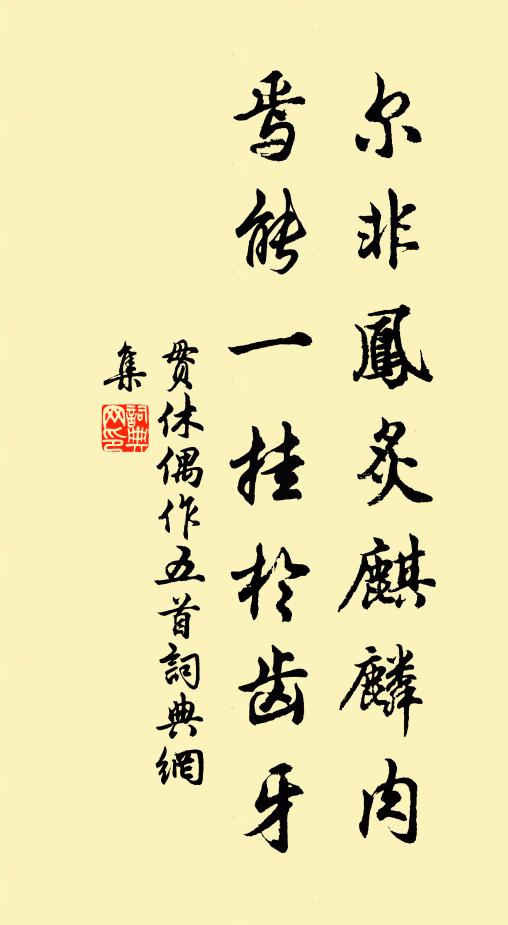 尔非鳳炙麒麟肉
焉能一挂於齿牙
贯休偶作五首詞典網
集
詞典
网印